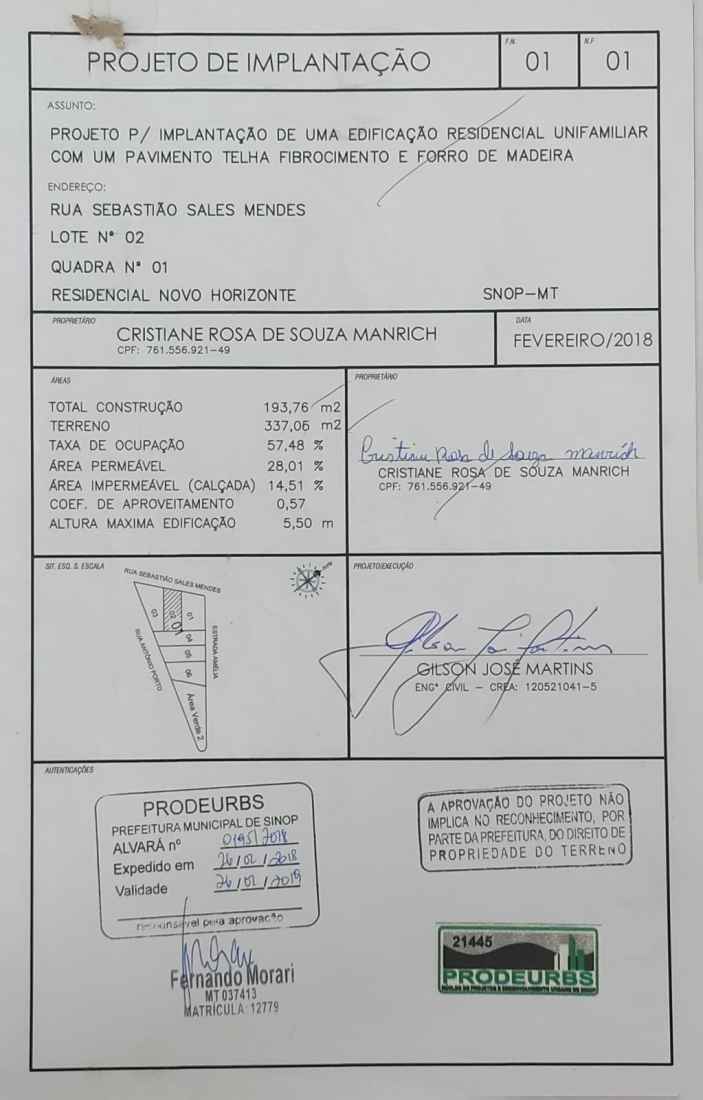 PROJETO DE IMPLANTAÇÃO
F.N.
01
N.F
01
ASSUNTO:
PROJETO P/ IMPLANTAÇÃO DE UMA EDIFICAÇÃO RESIDENCIAL UNIFAMILIAR
COM UM PAVIMENTO TELHA FIBROCIMENTO E FORRO DE MADEIRA
ENDEREÇO:
RUA SEBASTIÃO SALES MENDES
LOTE Nº 02
QUADRA Nº 01
RESIDENCIAL NOVO HORIZONTE SNOP-MT
PROPRIETÁRIO
CRISTIANE ROSA DE SOUZA MANRICH
CPF: 761.556.921-49
DATA
FEVEREIRO/2018
ÁREAS
TOTAL CONSTRUÇÃO 193,76 m2
TERRENO 337,06 m2
TAXA DE OCUPAÇÃO 57,48 %
ÁREA PERMEÁVEL 28,01 %
ÁREA IMPERMEÁVEL (CALÇADA) 14,51 %
COEF. DE APROVEITAMENTO 0,57
ALTURA MAXIMA EDIFICAÇÃO 5,50 m
PROPRIETÁRIO
Cristiane Rosa de Souza Manrich
CRISTIANE ROSA DE SOUZA MANRICH
CPF: 761.556.921-49
SIT. ESQ. S. ESCALA
RUA SEBASTIÃO SALES MENDES
03
02
01
01
04
05
06
Área Verde 2
ESTRADA AMÉLIA
RUA ANTÔNIO PORTO
PROJETO/EXECUÇÃO
Gilson José Martins
GILSON JOSÉ MARTINS
ENGº CIVIL - CREA: 120521041-5
AUTENTICAÇÕES
PRODEURBS
PREFEITURA MUNICIPAL DE SINOP
ALVARÁ nº 0195/2018
Expedido em 26/02/2018
Validade 26/02/2019
responsável pela aprovação
Fernando Morari
MT 037413
MATRÍCULA: 12779
A APROVAÇÃO DO PROJETO NÃO
IMPLICA NO RECONHECIMENTO, POR
PARTE DA PREFEITURA, DO DIREITO DE
PROPRIEDADE DO TERRENO
21445
PRODEURBS
NÚCLEO DE PROJETOS E DESENVOLVIMENTO URBANO DE SINOP